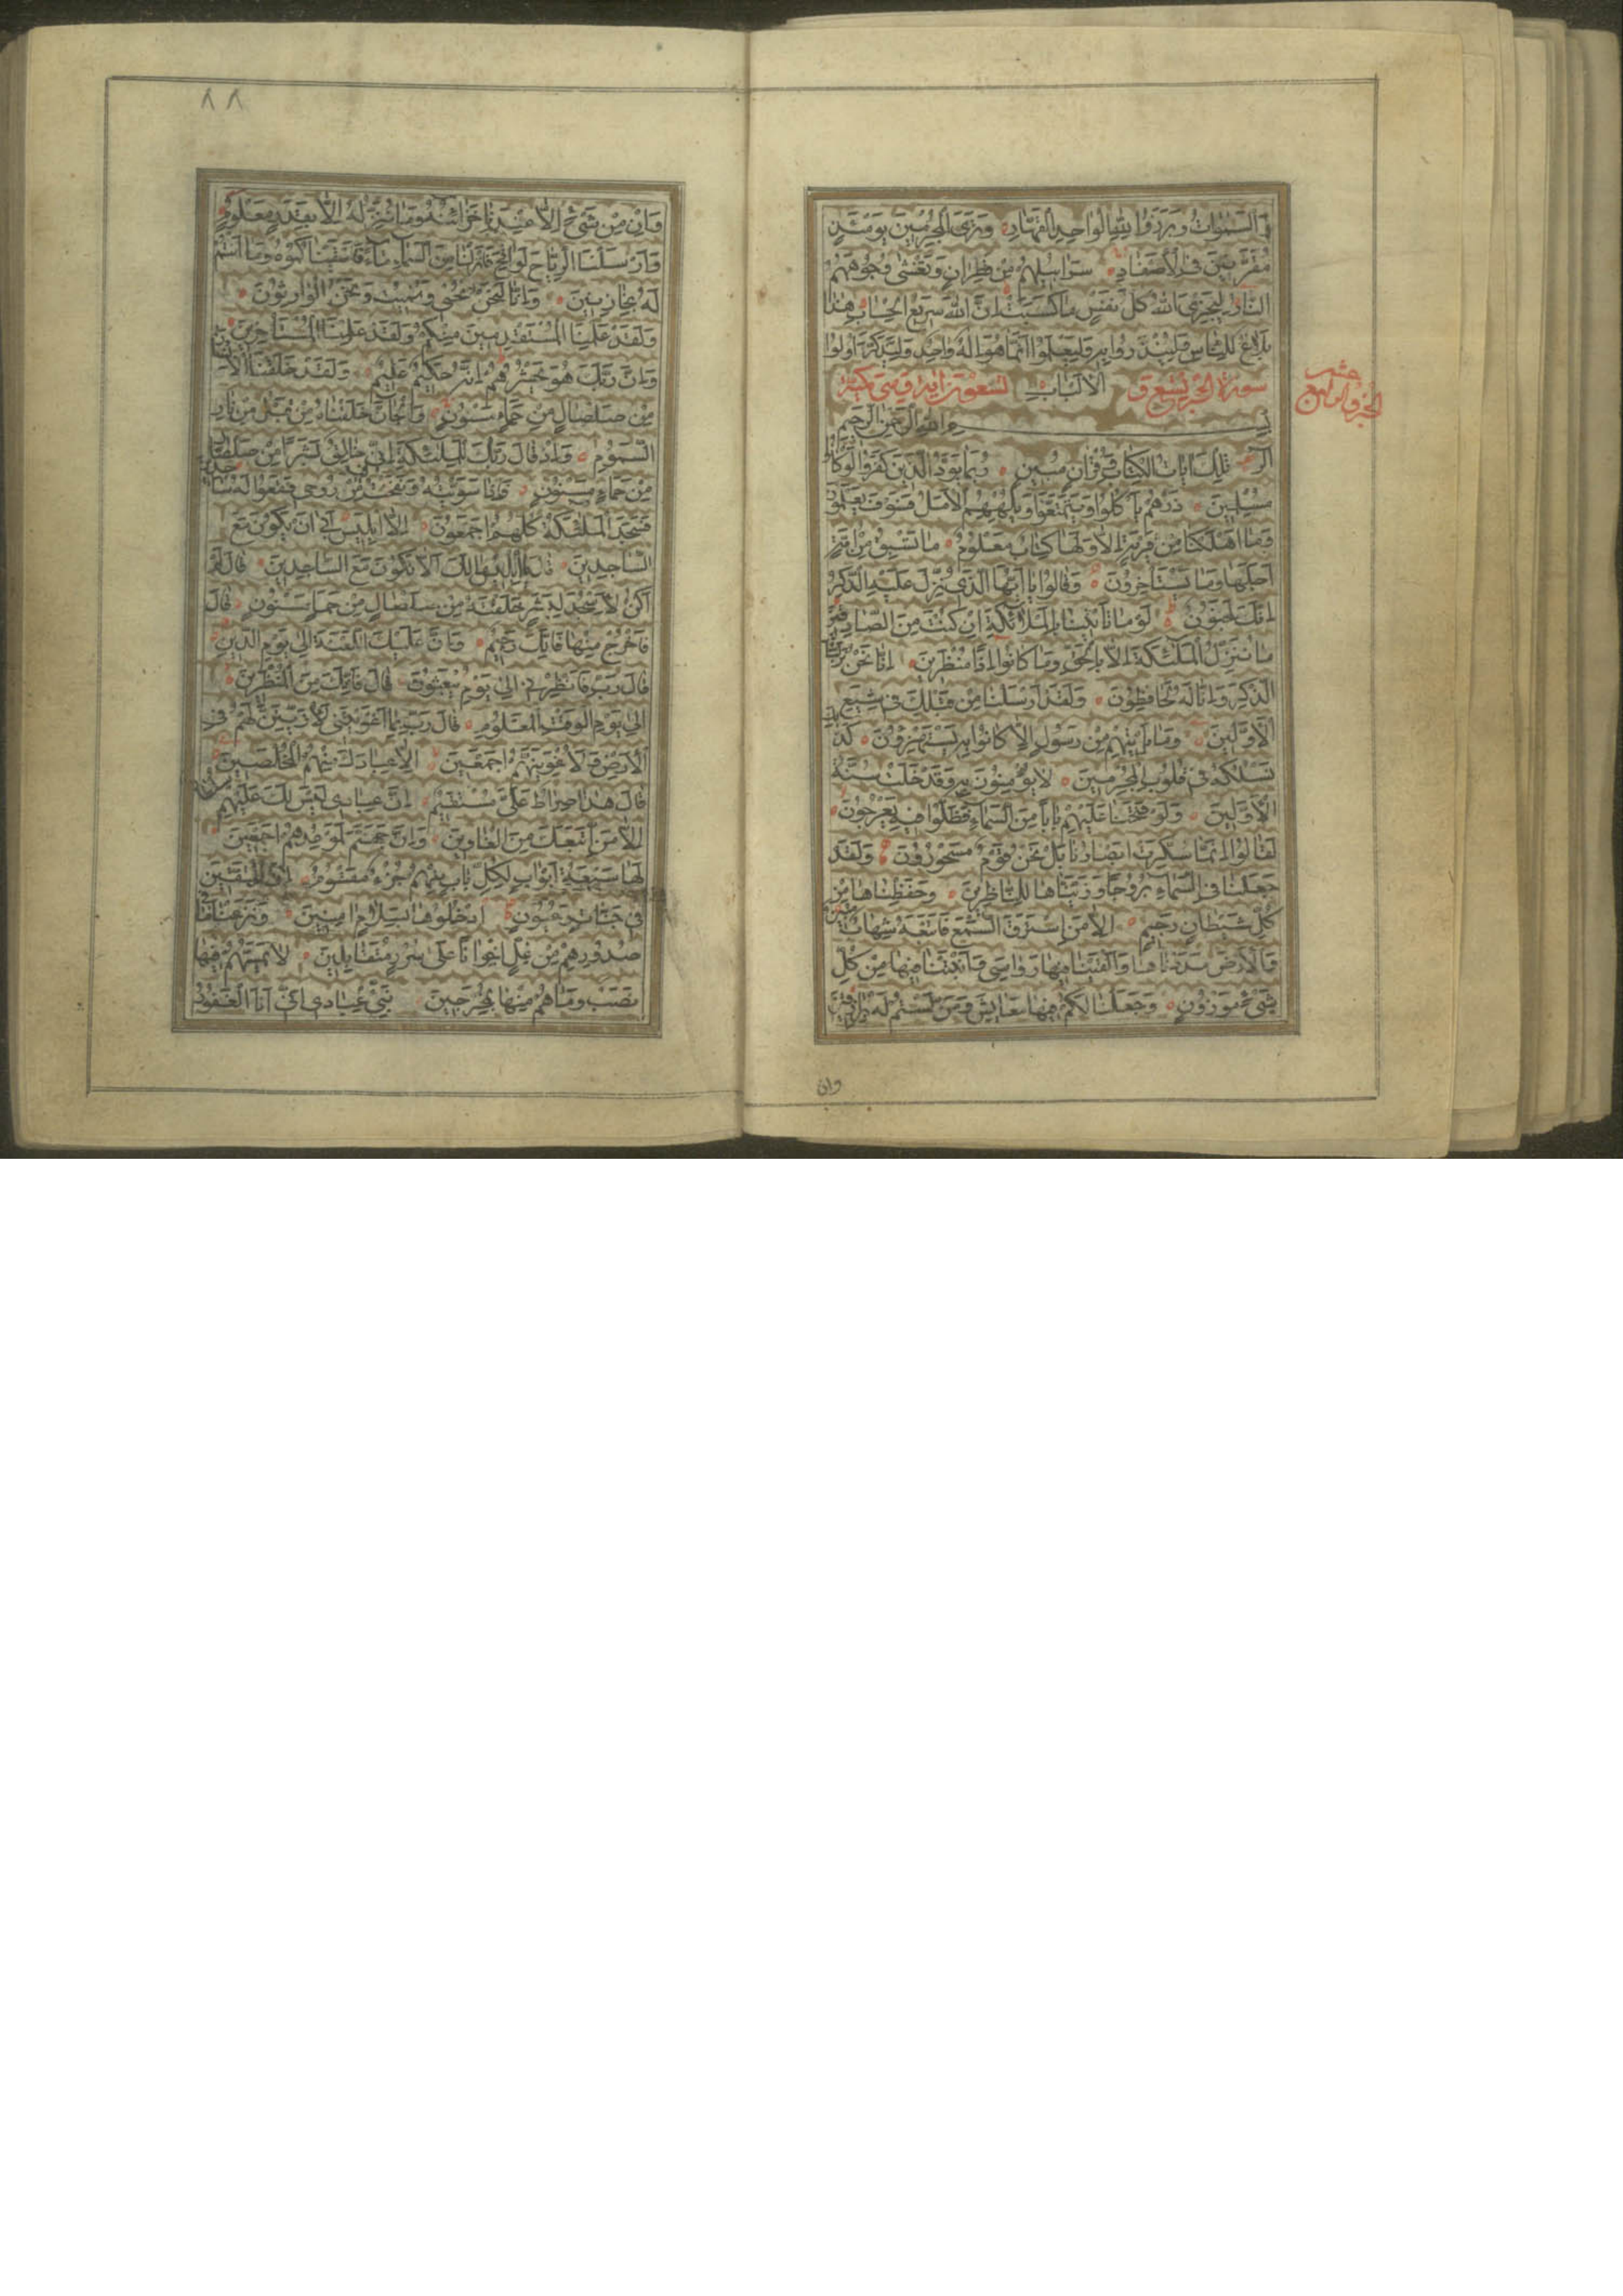 فى السموات وبرزوا لله الواحد القهار وترى المجرمين يومئذ
مقرنين فى الاصفاد سرابيلهم من قطران وتغشى وجوههم
النار ليجزى الله كل نفس ما كسبت ان الله سريع الحساب هذا
بلاغ للناس ولينذروا به وليعلموا انما هو اله واحد وليذكر اولوا
سورة الحجر تسع و الالباب تسعون اية وهى مكية
الجزو الرابع عشر
بسم الله الرحمن الرحيم
الر تلك ايات الكتاب وقران مبين ربما يود الذين كفروا لو كانوا
مسلمين ذرهم ياكلوا ويتمتعوا ويلههم الامل فسوف يعلمون
وما اهلكنا من قرية الا ولها كتاب معلوم ما تسبق من امة
اجلها وما يستاخرون وقالوا يا ايها الذى نزل عليه الذكر
انك لمجنون لو ما تاتينا بالملائكة ان كنت من الصادقين
ما ننزل الملئكة الا بالحق وما كانوا اذا منظرين انا نحن نزلنا
الذكر وانا له لحافظون ولقد ارسلنا من قبلك فى شيع
الاولين وما ياتيهم من رسول الا كانوا به يستهزؤن كذلك
نسلكه فى قلوب المجرمين لا يؤمنون به وقد خلت سنة
الاولين ولو فتحنا عليهم بابا من السماء فظلوا فيه يعرجون
لقالوا انما سكرت ابصارنا بل نحن قوم مسحورون ولقد
جعلنا فى السماء بروجا وزيناها للناظرين وحفظناها من
كل شيطان رجيم الا من استرق السمع فاتبعه شهاب مبين
والارض مددناها والقينا فيها رواسى وانبتنا فيها من كل
شىء موزون وجعلنا لكم فيها معايش ومن لستم له برازقين
وان
٨٨
وان من شىء الا عندنا خزائنه وما ننزله الا بقدر معلوم
وارسلنا الرياح لواقح فانزلنا من السماء ماء فاسقيناكموه وما انتم
له بخازنين وانا لنحن نحيى ونميت ونحن الوارثون
ولقد علمنا المستقدمين منكم ولقد علمنا المستاخرين
وان ربك هو يحشرهم انه حكيم عليم ولقد خلقنا الانسان
من صلصال من حما مسنون والجان خلقناه من قبل من نار
السموم واذ قال ربك للملئكة انى خالق بشرا من صلصال
من حماء مسنون فاذا سويته ونفخت فيه من روحى فقعوا له ساجدين
فسجد الملئكة كلهم اجمعون الا ابليس ابى ان يكون مع
الساجدين قال يا ابليس ما لك الا تكون مع الساجدين قال لم
اكن لاسجد لبشر خلقته من صلصال من حما مسنون قال
فاخرج منها فانك رجيم وان عليك اللعنة الى يوم الدين
قال رب فانظرنى الى يوم يبعثون قال فانك من المنظرين
الى يوم الوقت المعلوم قال رب بما اغويتنى لازينن لهم فى
الارض ولاغوينهم اجمعين الا عبادك منهم المخلصين
قال هذا صراط على مستقيم ان عبادى ليس لك عليهم سلطان
الا من اتبعك من الغاوين وان جهنم لموعدهم اجمعين
لها سبعة ابواب لكل باب منهم جزء مقسوم ان المتقين
فى جنات وعيون ادخلوها بسلام امنين ونزعنا ما فى
صدورهم من غل اخوانا على سرر متقابلين لا يمسهم فيها
نصب وما هم منها بمخرجين نبئ عبادى انى انا الغفور